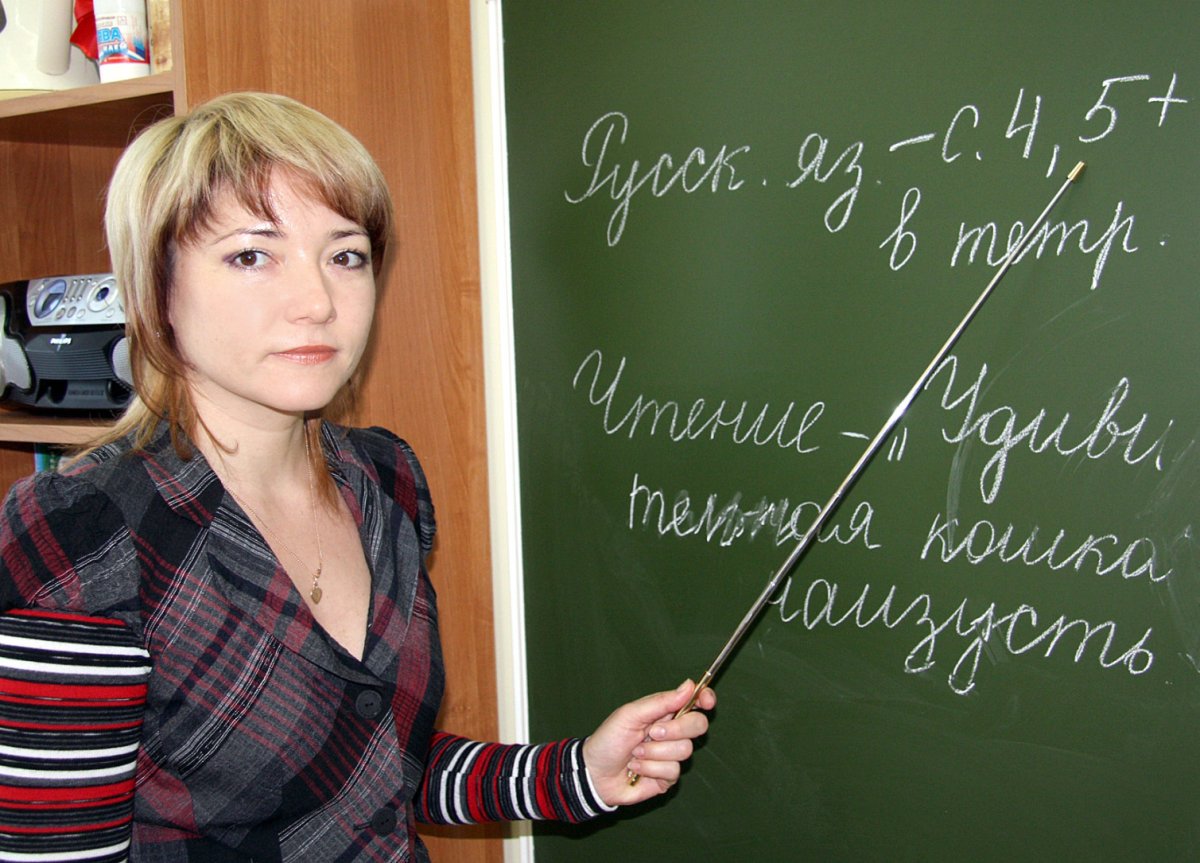 ЕВА
PHILIPS
Русск. яз. – с. 4, 5+
в тетр.
Чтение – „Удиви
тельная кошка
наизусть